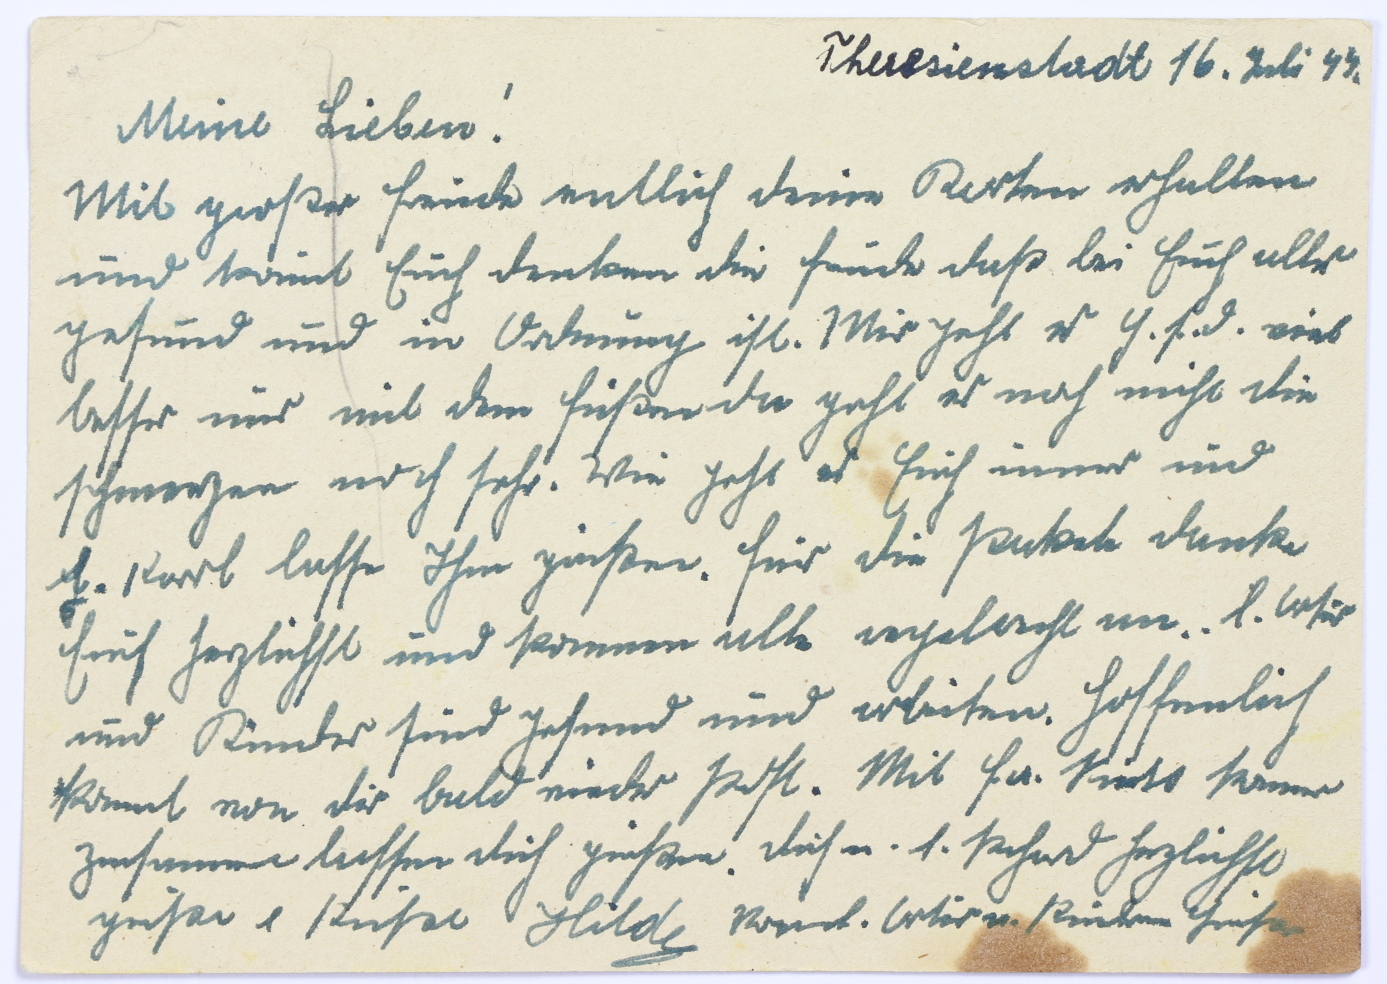 Theresienstadt 16. Juli 44.
Meine Lieben!
Mit großer Freude entlich deine Karten erhalten
und könnt Euch denken die Freude daß bei Euch alles
gesund und in Ordnung ist. Mir geht es G.s.d. viel
besser nur mit dem Füßen da geht es noch nicht die
schmerzen noch sehr. Wie geht es Euch immer und
l. Karl lasse Ihm grüßen. Für die Pakete danke
Euch herzlichst und kommen alle an.. l. Artur
und Kinder sind gesund und arbeiten. Hoffenlich
kommt von dir bald wieder Post. Mit Fr. komme
zusamme lassen dich grüßen. dich u. l. herzlichst
grüße e Küße Hilde Artur u. Kindern